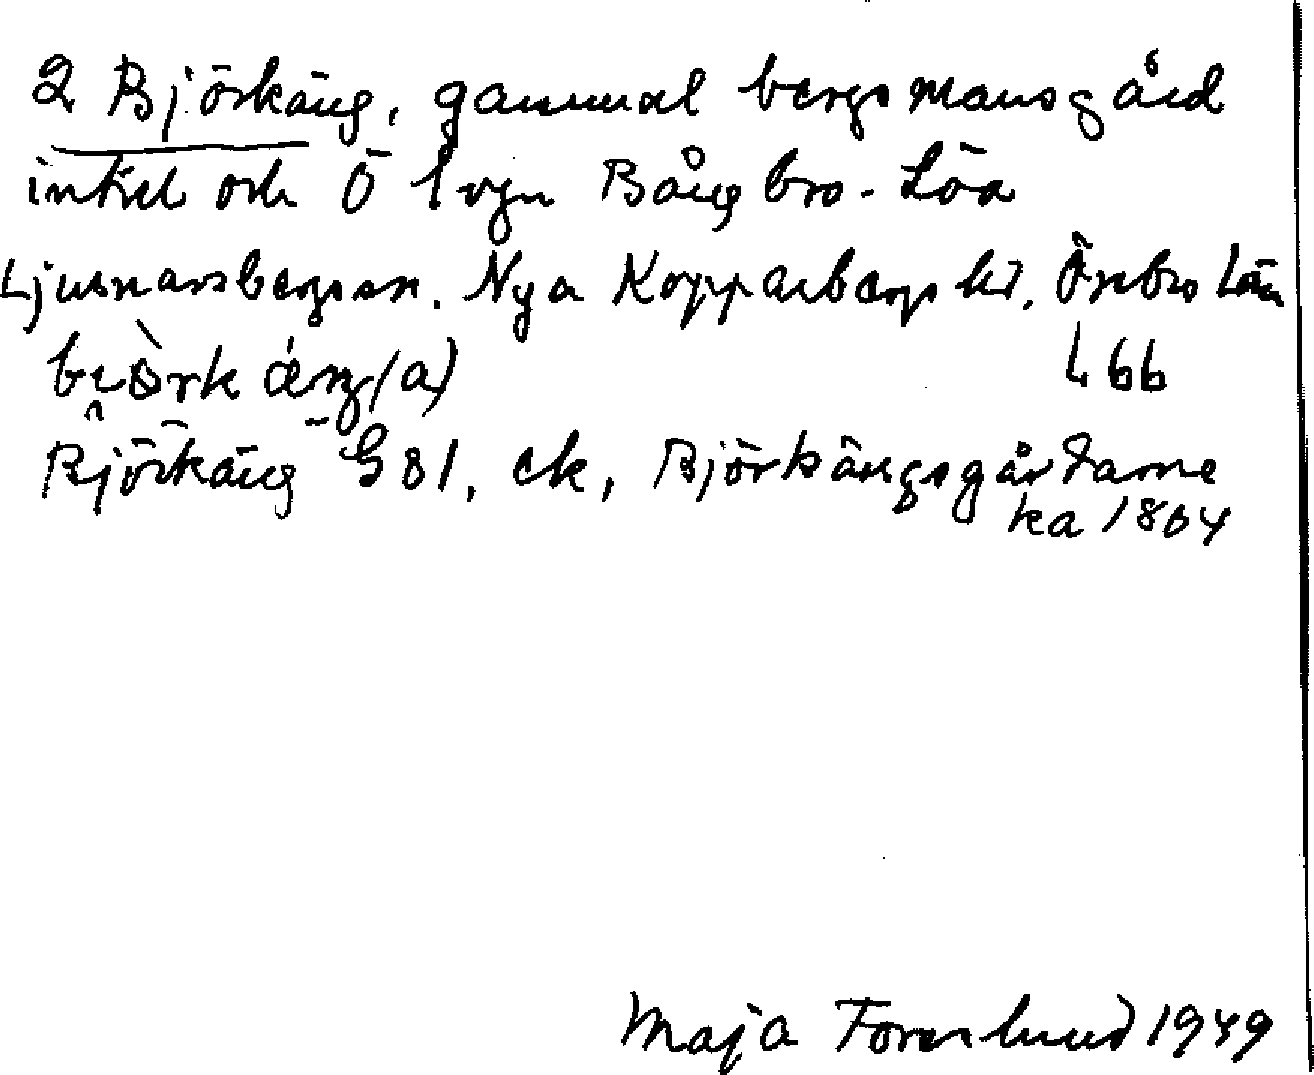 2 Björkäng, gammal bergsmansgård
intill och Ö lvgn Bångbro-Löa
Ljusnarsbergs sn. Nya Kopparbergs hd. Örebro Län
L 66
Björkäng G 81, ek, Björkängsgårdarne
ka 1864
Maja Forsslund 1949